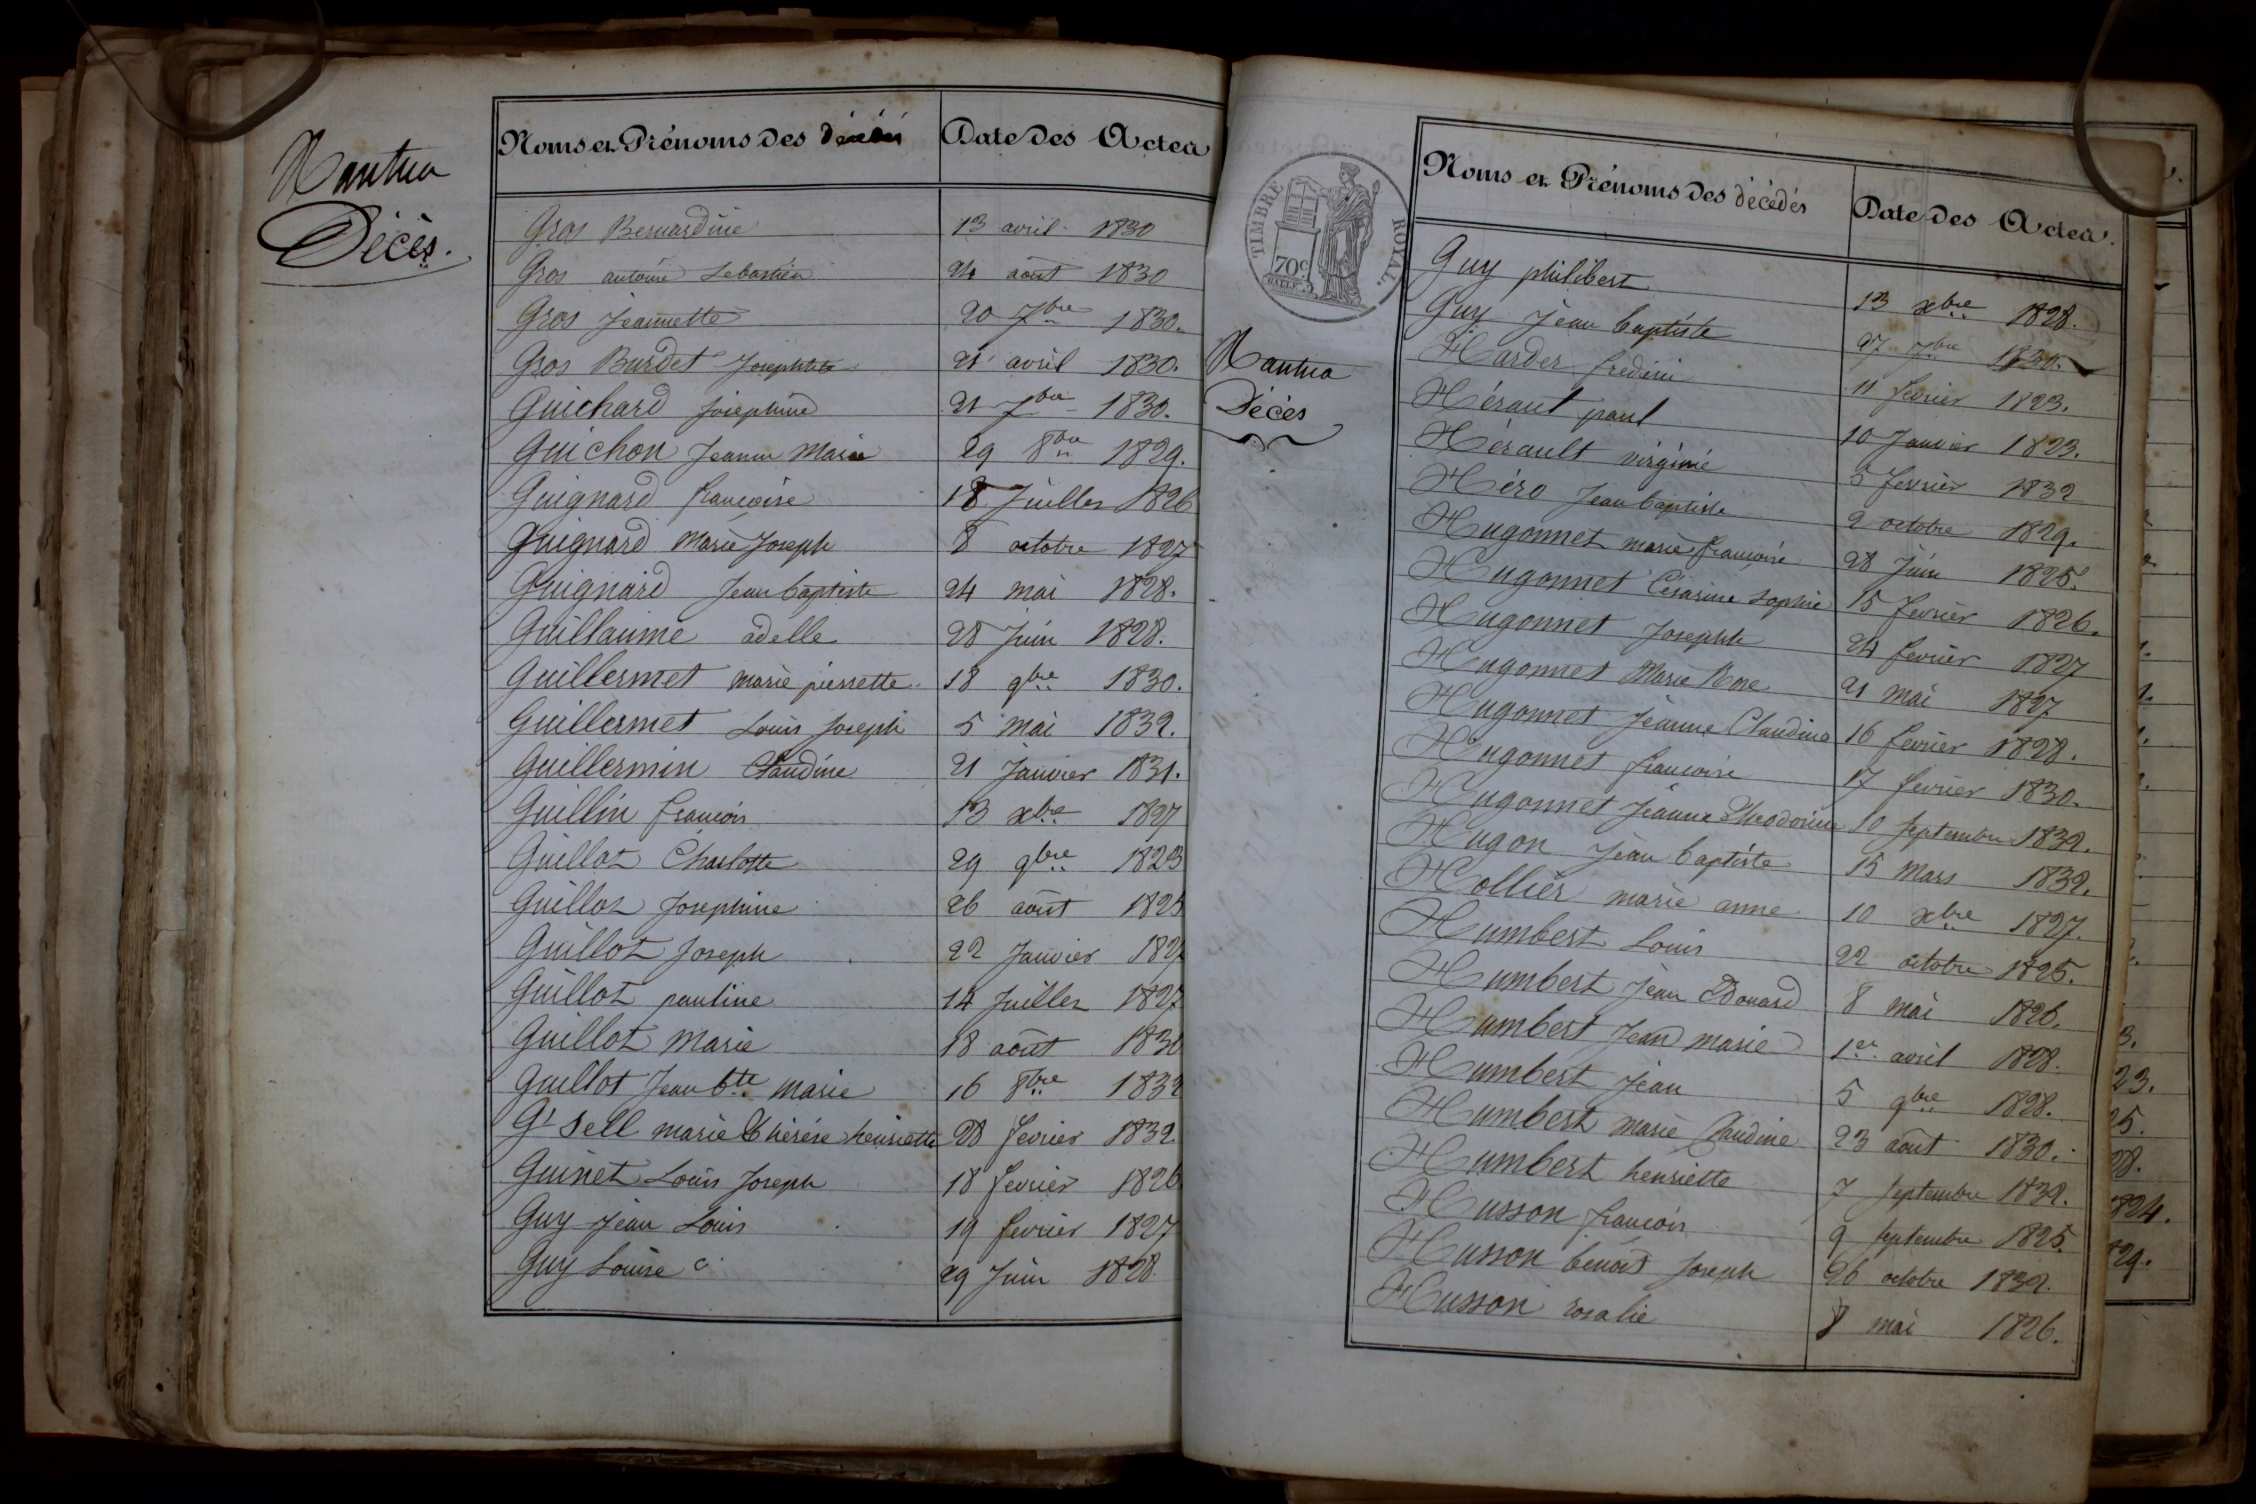 Nantua
Décès.
Noms et Prénoms des décédés Date des Actes
Gros Bernardine 13 avril 1830
Gros antoine Sebastien 24 août 1830
Gros Jeannette 20 7bre 1830.
Gros Burdet Josephte 21 avril 1830.
Guichard Josephine 21 7bre 1830.
Guichon Jeanne Marie 29 8bre 1829.
Guignard françoise 18 Juillet 1826
Guignard Marie Joseph 8 octobre 1827
Guignard Jean baptiste 24 mai 1828.
Guillaume adelle 28 Juin 1828.
Guillermet marie pierrette 18 9bre 1830.
Guillermet Louis Joseph 5 mai 1832.
Guillermin Claudine 21 Janvier 1831.
Guillin françois 13 xbre 1827
Guillot Charlotte 29 9bre 1823
Guillot Josephine 26 août 1825
Guillot Joseph 22 Janvier 1827
Guillot pauline 14 Juillet 1827
Guillot Marie 18 août 1830
Guillot Jean bte marie 16 8bre 1832
Gt Sell marie thérése henriette 28 fevrier 1832.
Guinet Louis Joseph 18 fevrier 1826
Guy Jean Louis 19 fevrier 1827
Guy Louise 29 Juin 1828.
TIMBRE ROYAL.
70c
Nantua
Décès
Noms et Prénoms des décédés Date des Actes.
Guy philibert 13 xbre 1828.
Guy Jean baptiste 27 7bre 1830.
Harder frederic 11 fevrier 1823.
Héraut paul 10 Janvier 1823.
Hérault virginie 5 fevrier 1832
Héro Jean baptiste 2 octobre 1829.
Hugonnet marie françoise 28 Juin 1825.
Hugonnet Césarine Sophie 15 fevrier 1826.
Hugonnet Josephte 24 fevrier 1827
Hugonnet Marie Rose 21 mai 1827
Hugonnet Jeanne Claudine 16 fevrier 1828.
Hugonnet francoise 17 fevrier 1830.
Hugonnet Jeanne Theodorine 10 septembre 1832.
Hugon Jean baptiste 15 Mars 1832.
Hollier marie anne 10 xbre 1827.
Humbert Louis 22 octobre 1825.
Humbert Jean Edouard 8 mai 1826.
Humbert Jean marie 1er avril 1828.
Humbert Jean 5 9bre 1828.
Humbert Marie Claudine 23 août 1830.
Humbert henriette 7 septembre 1832.
Husson françois 9 septembre 1825.
Husson benoit Joseph 26 octobre 1832.
Husson rosalie 8 mai 1826.